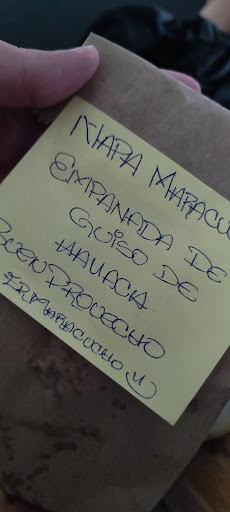 ÑAPA MARACU
EMPANADA DE
GUISO DE
HALLACA
BUEN PROVECHO
#ERMARACUCHO :)